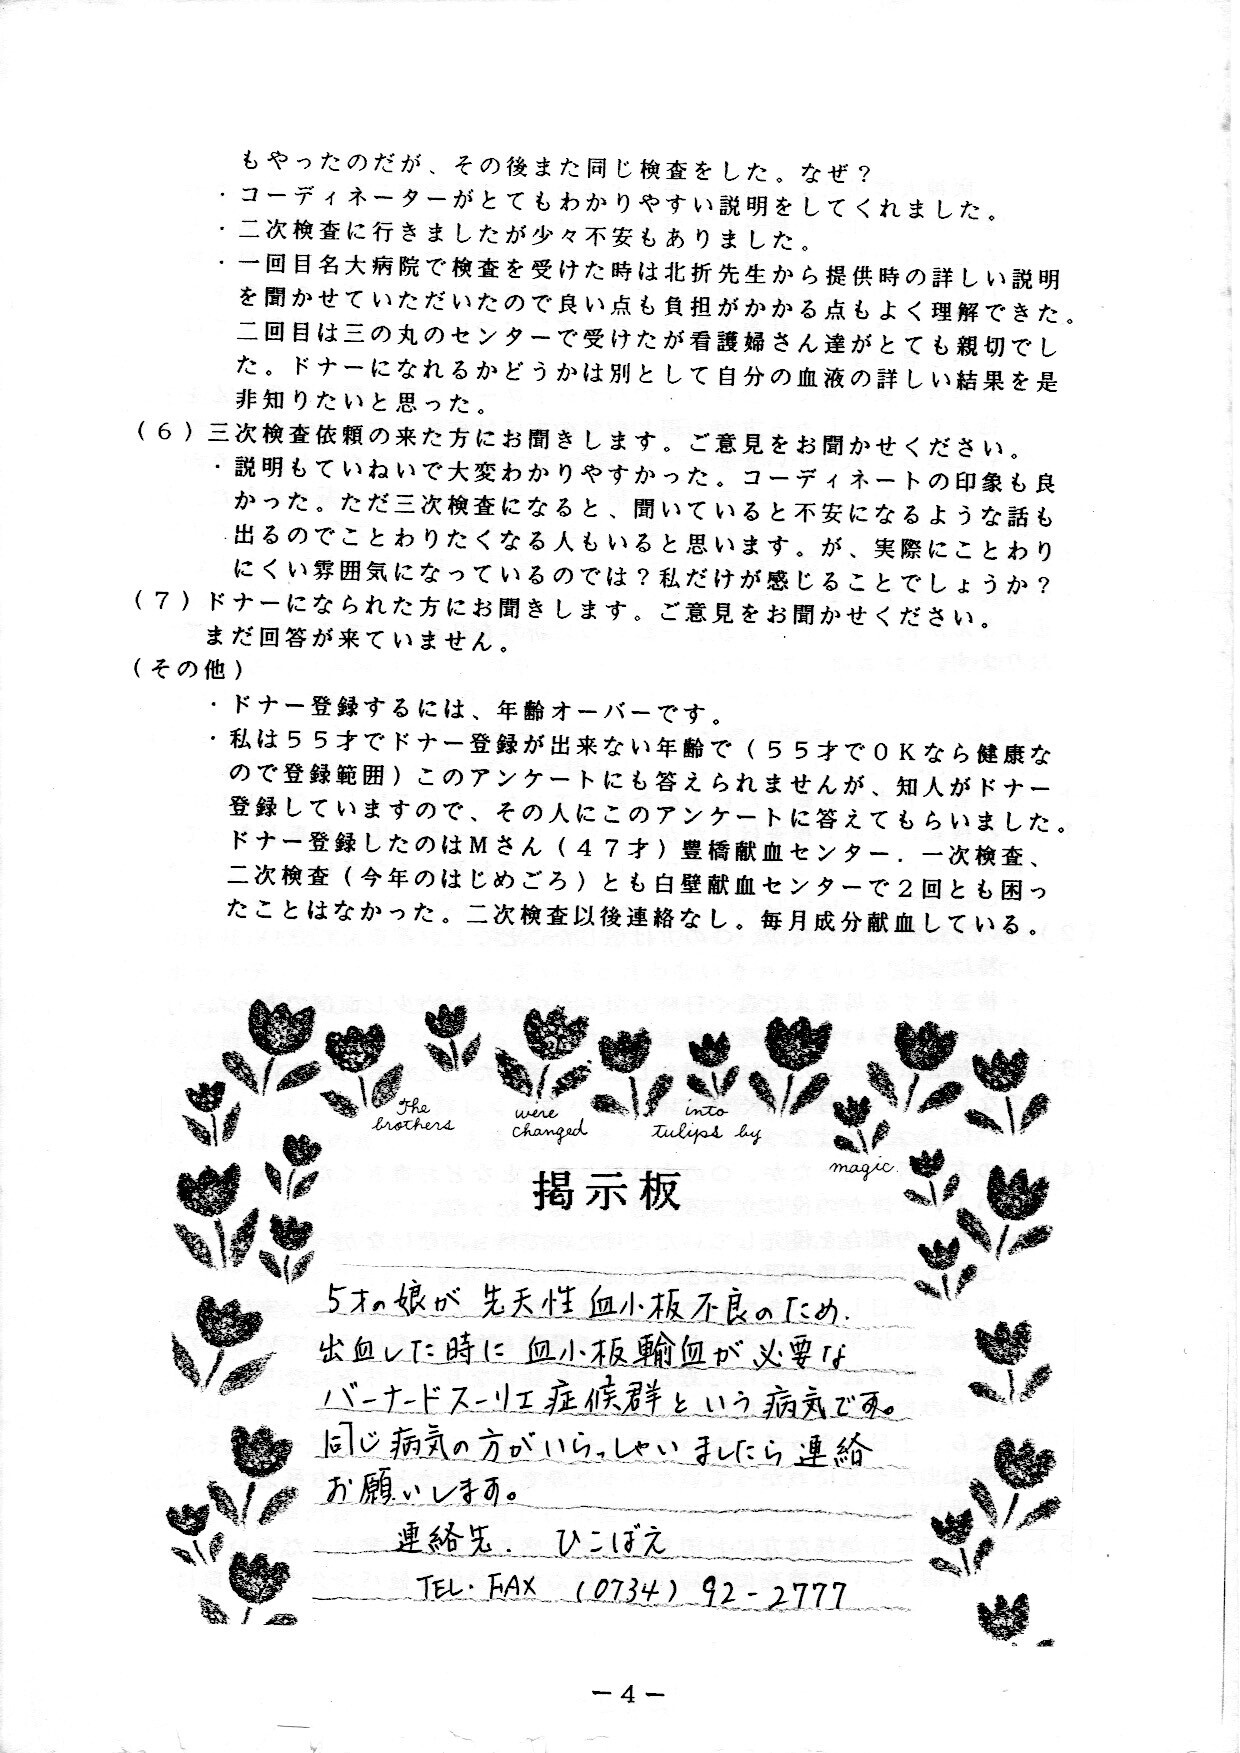 もやったのだが、その後また同じ検査をした。なぜ？
・コーディネーターがとてもわかりやすい説明をしてくれました。
・二次検査に行きましたが少々不安もありました。
・一回目名大病院で検査を受けた時は北折先生から提供時の詳しい説明
を聞かせていただいたので良い点も負担がかかる点もよく理解できた。
二回目は三の丸のセンターで受けたが看護婦さん達がとても親切でし
た。ドナーになれるかどうかは別として自分の血液の詳しい結果を是
非知りたいと思った。
（６）三次検査依頼の来た方にお聞きします。ご意見をお聞かせください。
・説明もていねいで大変わかりやすかった。コーディネートの印象も良
かった。ただ三次検査になると、聞いていると不安になるような話も
出るのでことわりたくなる人もいると思います。が、実際にことわり
にくい雰囲気になっているのでは？私だけが感じることでしょうか？
（７）ドナーになられた方にお聞きします。ご意見をお聞かせください。
まだ回答が来ていません。
（その他）
・ドナー登録するには、年齢オーバーです。
・私は５５才でドナー登録が出来ない年齢で（５５才でＯＫなら健康な
ので登録範囲）このアンケートにも答えられませんが、知人がドナー
登録していますので、その人にこのアンケートに答えてもらいました。
ドナー登録したのはＭさん（４７才）豊橋献血センター．一次検査、
二次検査（今年のはじめごろ）とも白壁献血センターで２回とも困っ
たことはなかった。二次検査以後連絡なし。毎月成分献血している。
The brothers were changed into tulips by magic.
掲示板
5才の娘が 先天性血小板不良のため.
出血した時に 血小板輸血が必要な
バーナードスーリエ症候群という病気です。
同じ病気の方がいらっしゃいましたら連絡
お願いします。
連絡先. ひこばえ
TEL・FAX (0734) 92-2777
－4－